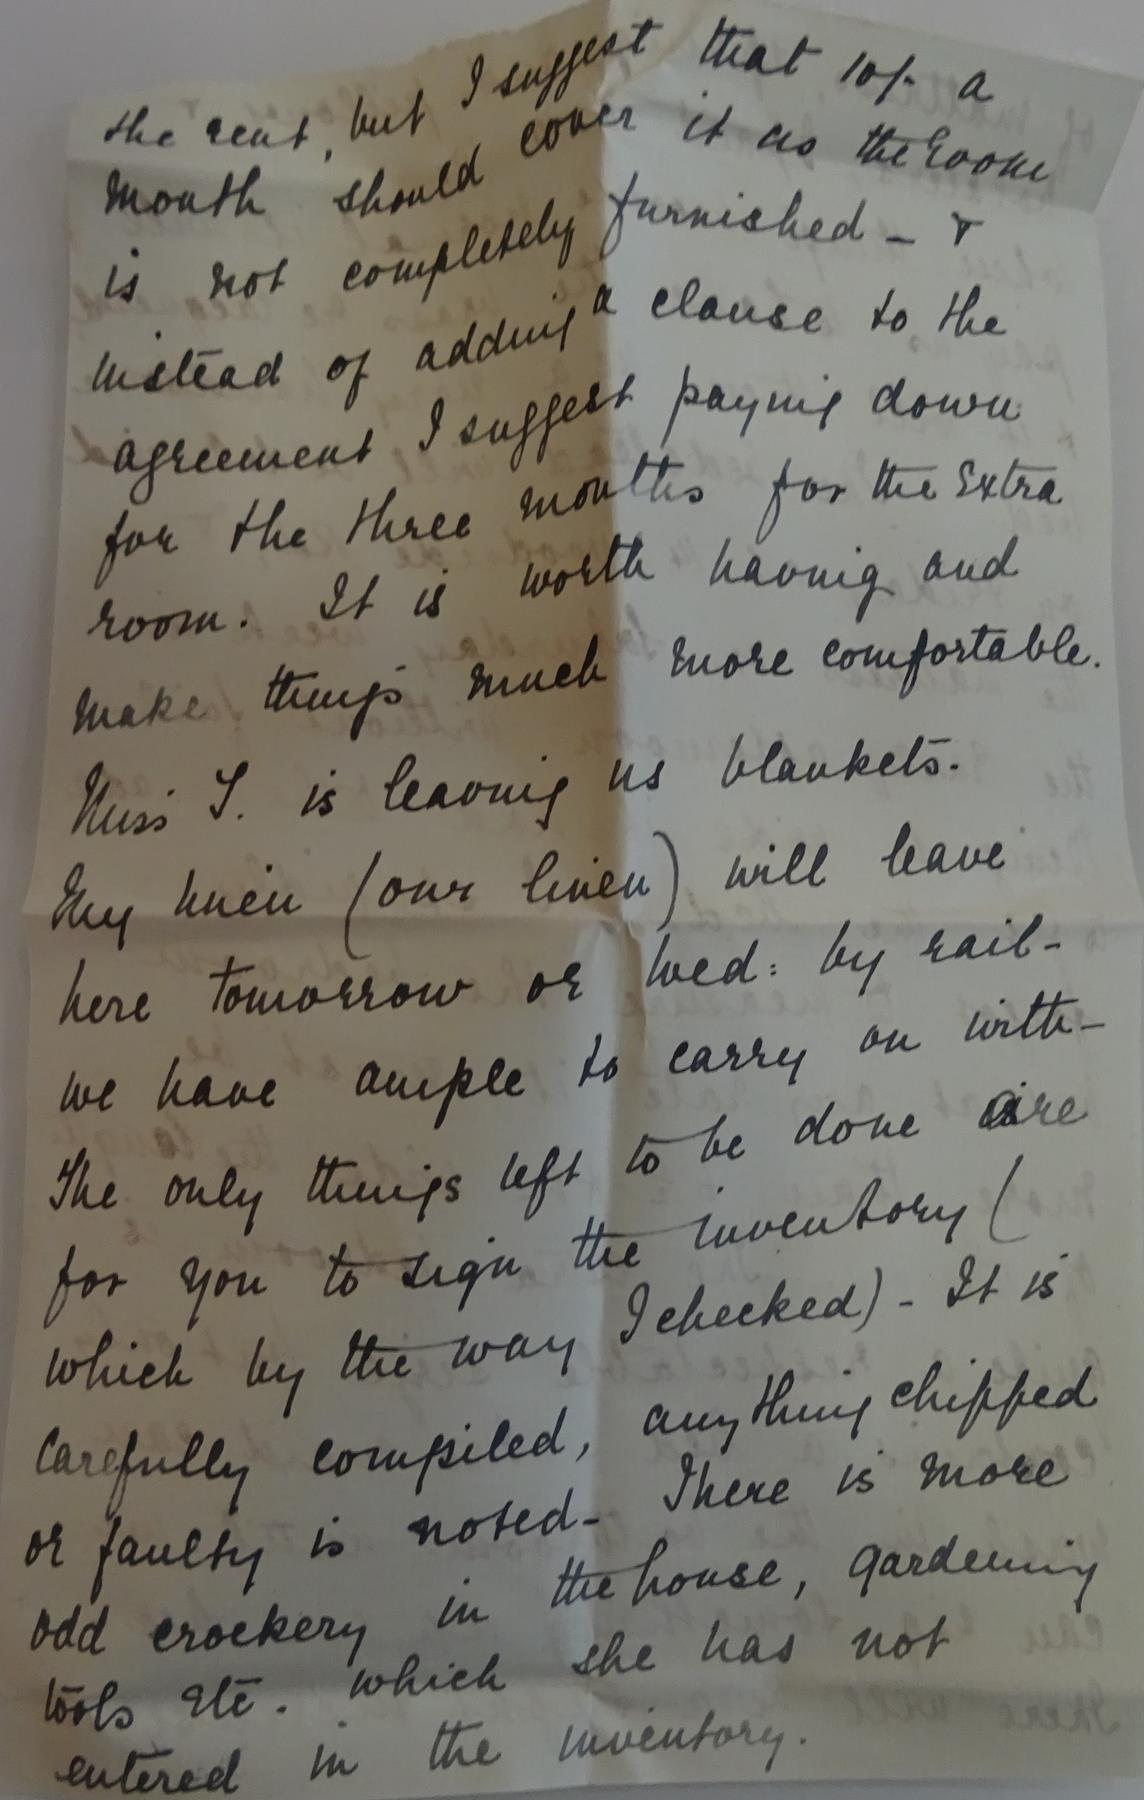 the rent, but I suggest that 10/- a
month should cover it as the room
is not completely furnished - &
instead of adding a clause to the
agreement I suggest paying down
for the three months for the Extra
room. It is worth having and
make things much more comfortable.
Miss S. is leaving us blankets.
My linen (our linen) will leave
here tomorrow or Wed: by rail-
we have ample to carry on with-
The only things left to be done are
for you to sign the inventory (
which by the way I checked) - It is
carefully compiled, anything chipped
or faulty is noted - There is more
odd crockery in the house, gardening
tools etc. which she has not
entered in the inventory.